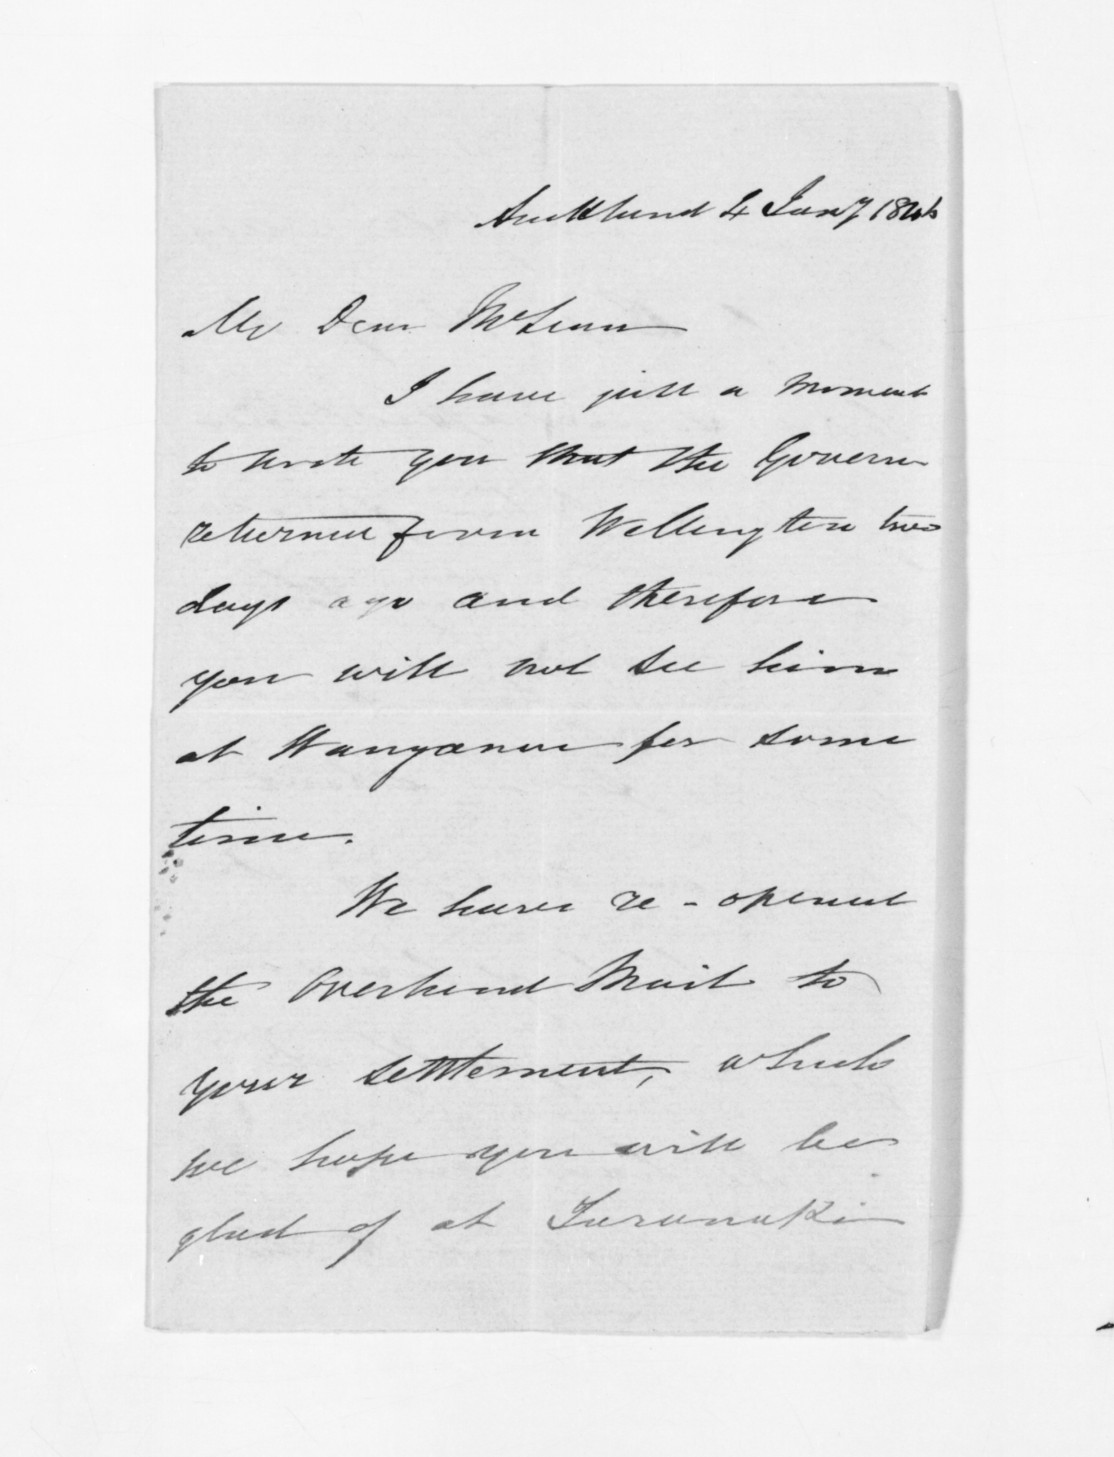 Auckland 4 Jany 1846
My Dear McLean
I have just a moment
to write you that the Governor
returned from Wellington two
days ago and therefore
you will not see him
at Wanganui for some
time.
We have re-opened
the Overland Mail to
your settlement, which
we hope you will be
glad of at Taranaki